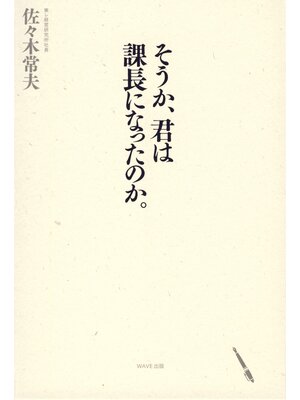 そうか、君は
課長になったのか。
東レ経営研究所社長
佐々木常夫
WAVE出版